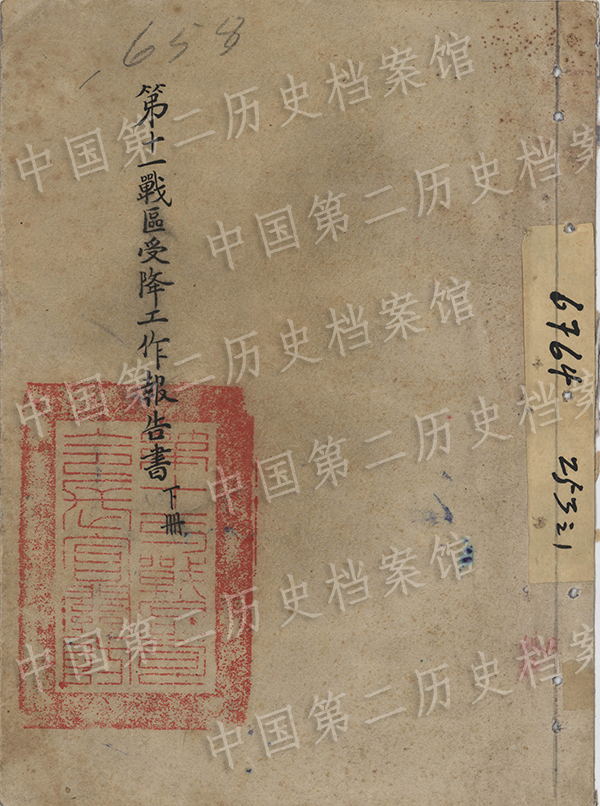 658
第十一戰區受降工作報告書 下冊
6764
253:1
中国第二历史档案馆
中国第二历史档案馆
中国第二历史档案馆
中国第二历史档案馆
中国第二历史档案馆
中国第二历史档案馆